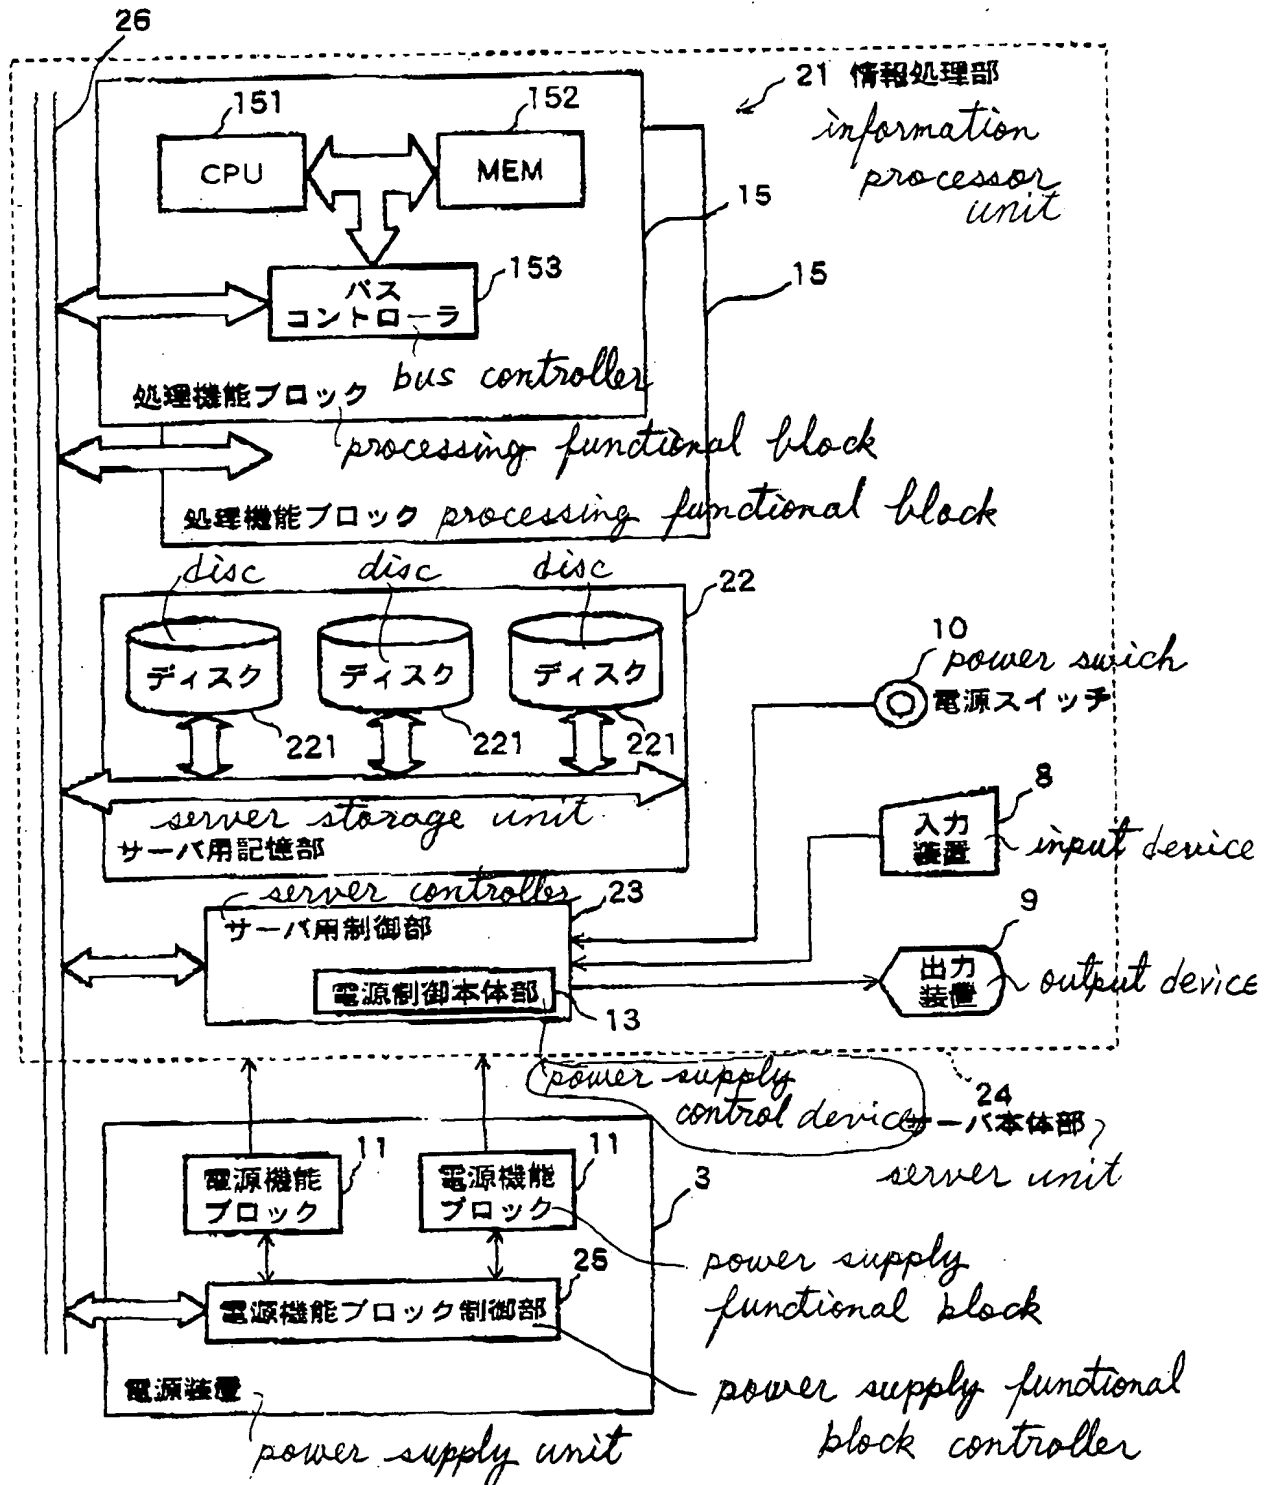 26
21 情報処理部
information
processor
unit
151
152
CPU
MEM
15
15
153
バス
コントローラ
bus controller
処理機能ブロック
processing functional block
処理機能ブロック processing functional block
disc
disc
disc
22
ディスク
ディスク
ディスク
221
221
221
10
power swich
電源スイッチ
server storage unit
サーバ用記憶部
8
入力
装置
input device
server controller
23
サーバ用制御部
電源制御本体部
13
9
出力
装置
output device
power supply
control device
24
サーバ本体部
server unit
11
電源機能
ブロック
11
電源機能
ブロック
3
power supply
functional block
25
電源機能ブロック制御部
power supply functional
block controller
電源装置
power supply unit